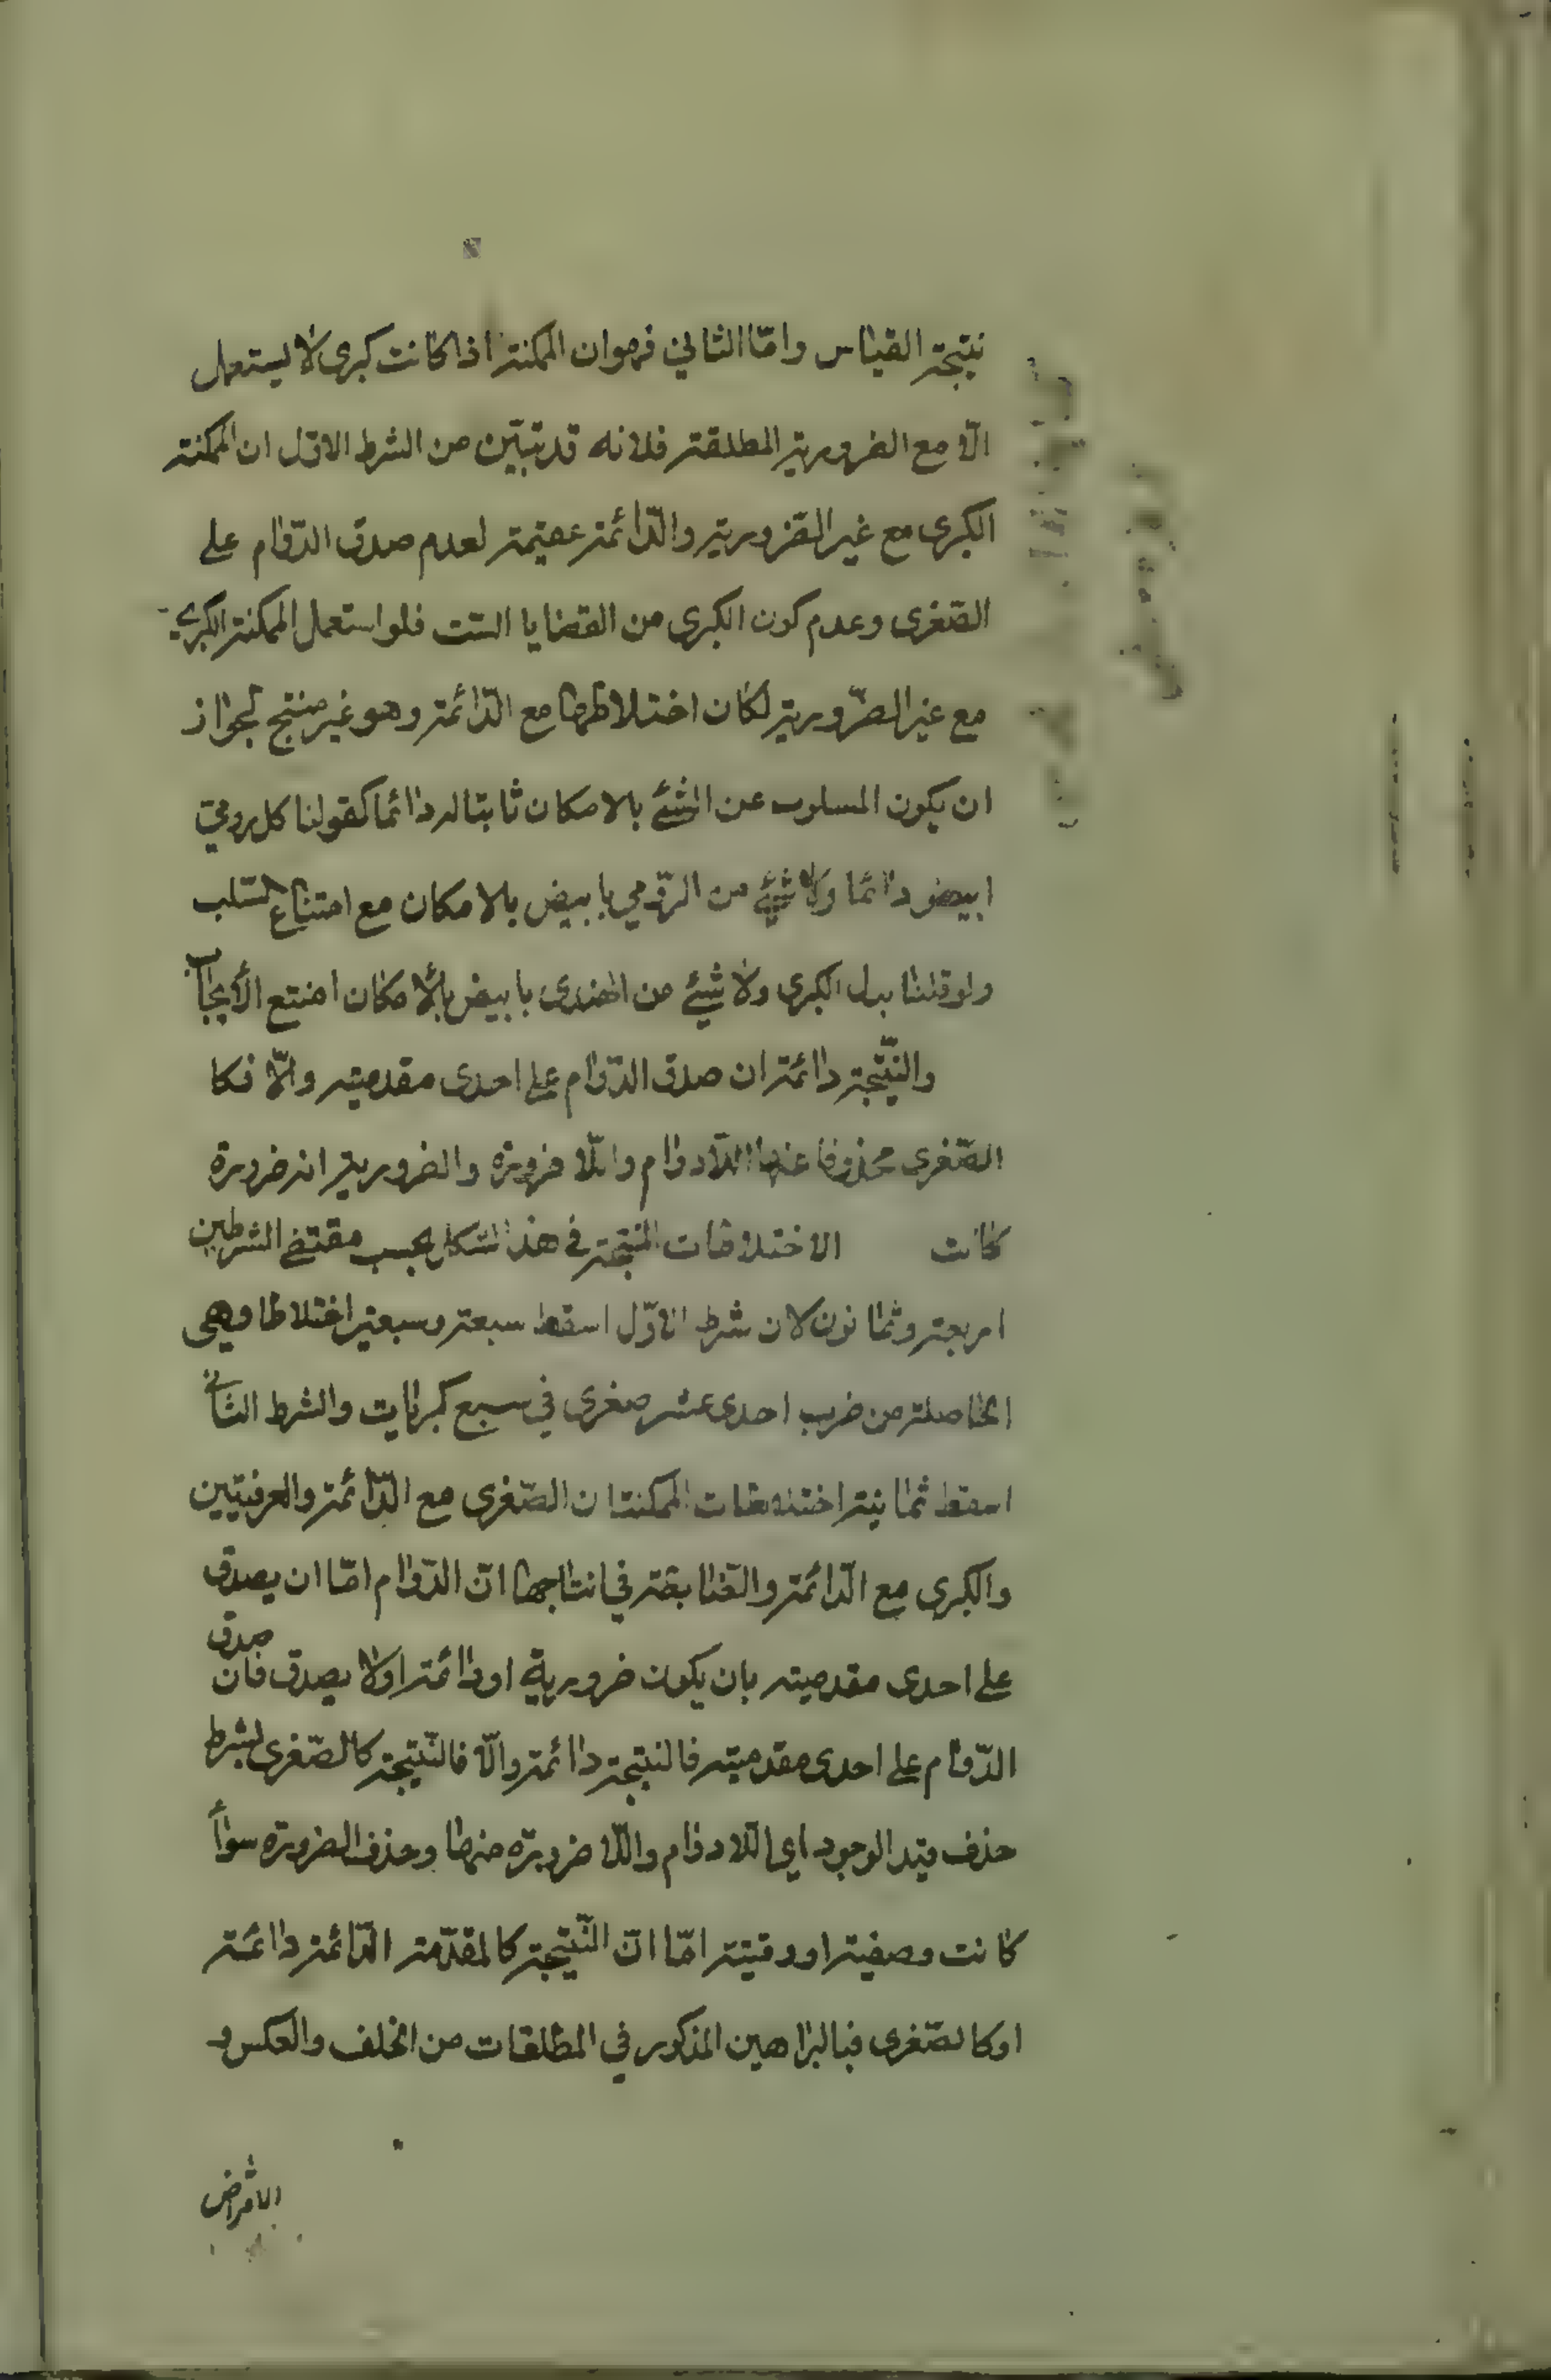 نتيجة القياس وامّا الثاني فهو ان الممكنة اذا كانت كبرى لا يستعمل
الّا مع الضرورية المطلقة فلانه قد تبيّن من الشرط الاوّل ان الممكنة
الكبرى مع غير الضّرورية والدّائمة عقيمة لعدم صدق الدّوام على
الصّغرى وعدم كون الكبرى من القضايا السّت فلو استعمل الممكنة الكبرى
مع غير الضّرورية لكان اختلاطها مع الدّائمة وهو غير منتج لجواز
ان يكون المسلوب عن الشئ بالامكان ثابتا له دائما كقولنا كل رومي
ابيض دائما ولا شئ من الرّومي بابيض بالامكان مع امتناع السّلب
ولو قلنا بدل الكبرى ولا شئ من الهندى بابيض بالامكان امتنع الأيجاب
والنّتيجة دائمة ان صدق الدّوام على احدى مقدمتيه والّا فكا
الصّغرى محذوفا عنها اللّادوام واللّا ضرورة والضرورية اية ضرورة
كانت الاختلاطات المنتجة في هذا الشكل بحسب مقتضى الشرطين
اربعة وثمانون لان شرط الاوّل اسقط سبعة وسبعين اختلاطا وهي
الحاصلة من ضرب احدى عشر صغرى في سبع كبريات والشرط الثاني
اسقط ثمانية اختلاطات الممكنتان الصّغرى مع الدّائمة والعرفيتين
والكبرى مع الدّائمة والضّابطة في انتاجها انّ الدّوام امّا ان يصدق
على احدى مقدمتيه بان يكون ضرورية او دائمة او لا يصدق فان صدق
الدّوام على احدى مقدمتيه فالنتيجة دائمة والّا فالنّتيجة كالصّغرى بشرط
حذف قيد الوجود اى اللّادوام واللّا ضرورة منها وحذف الضرورة سواأ
كانت وصفية او وقتية امّا انّ النّتيجة كالمقدّمة الدّائمة دائمة
او كالصّغرى فبالبراهين المذكور في المطلقات من الخلف والعكس و
الافراض